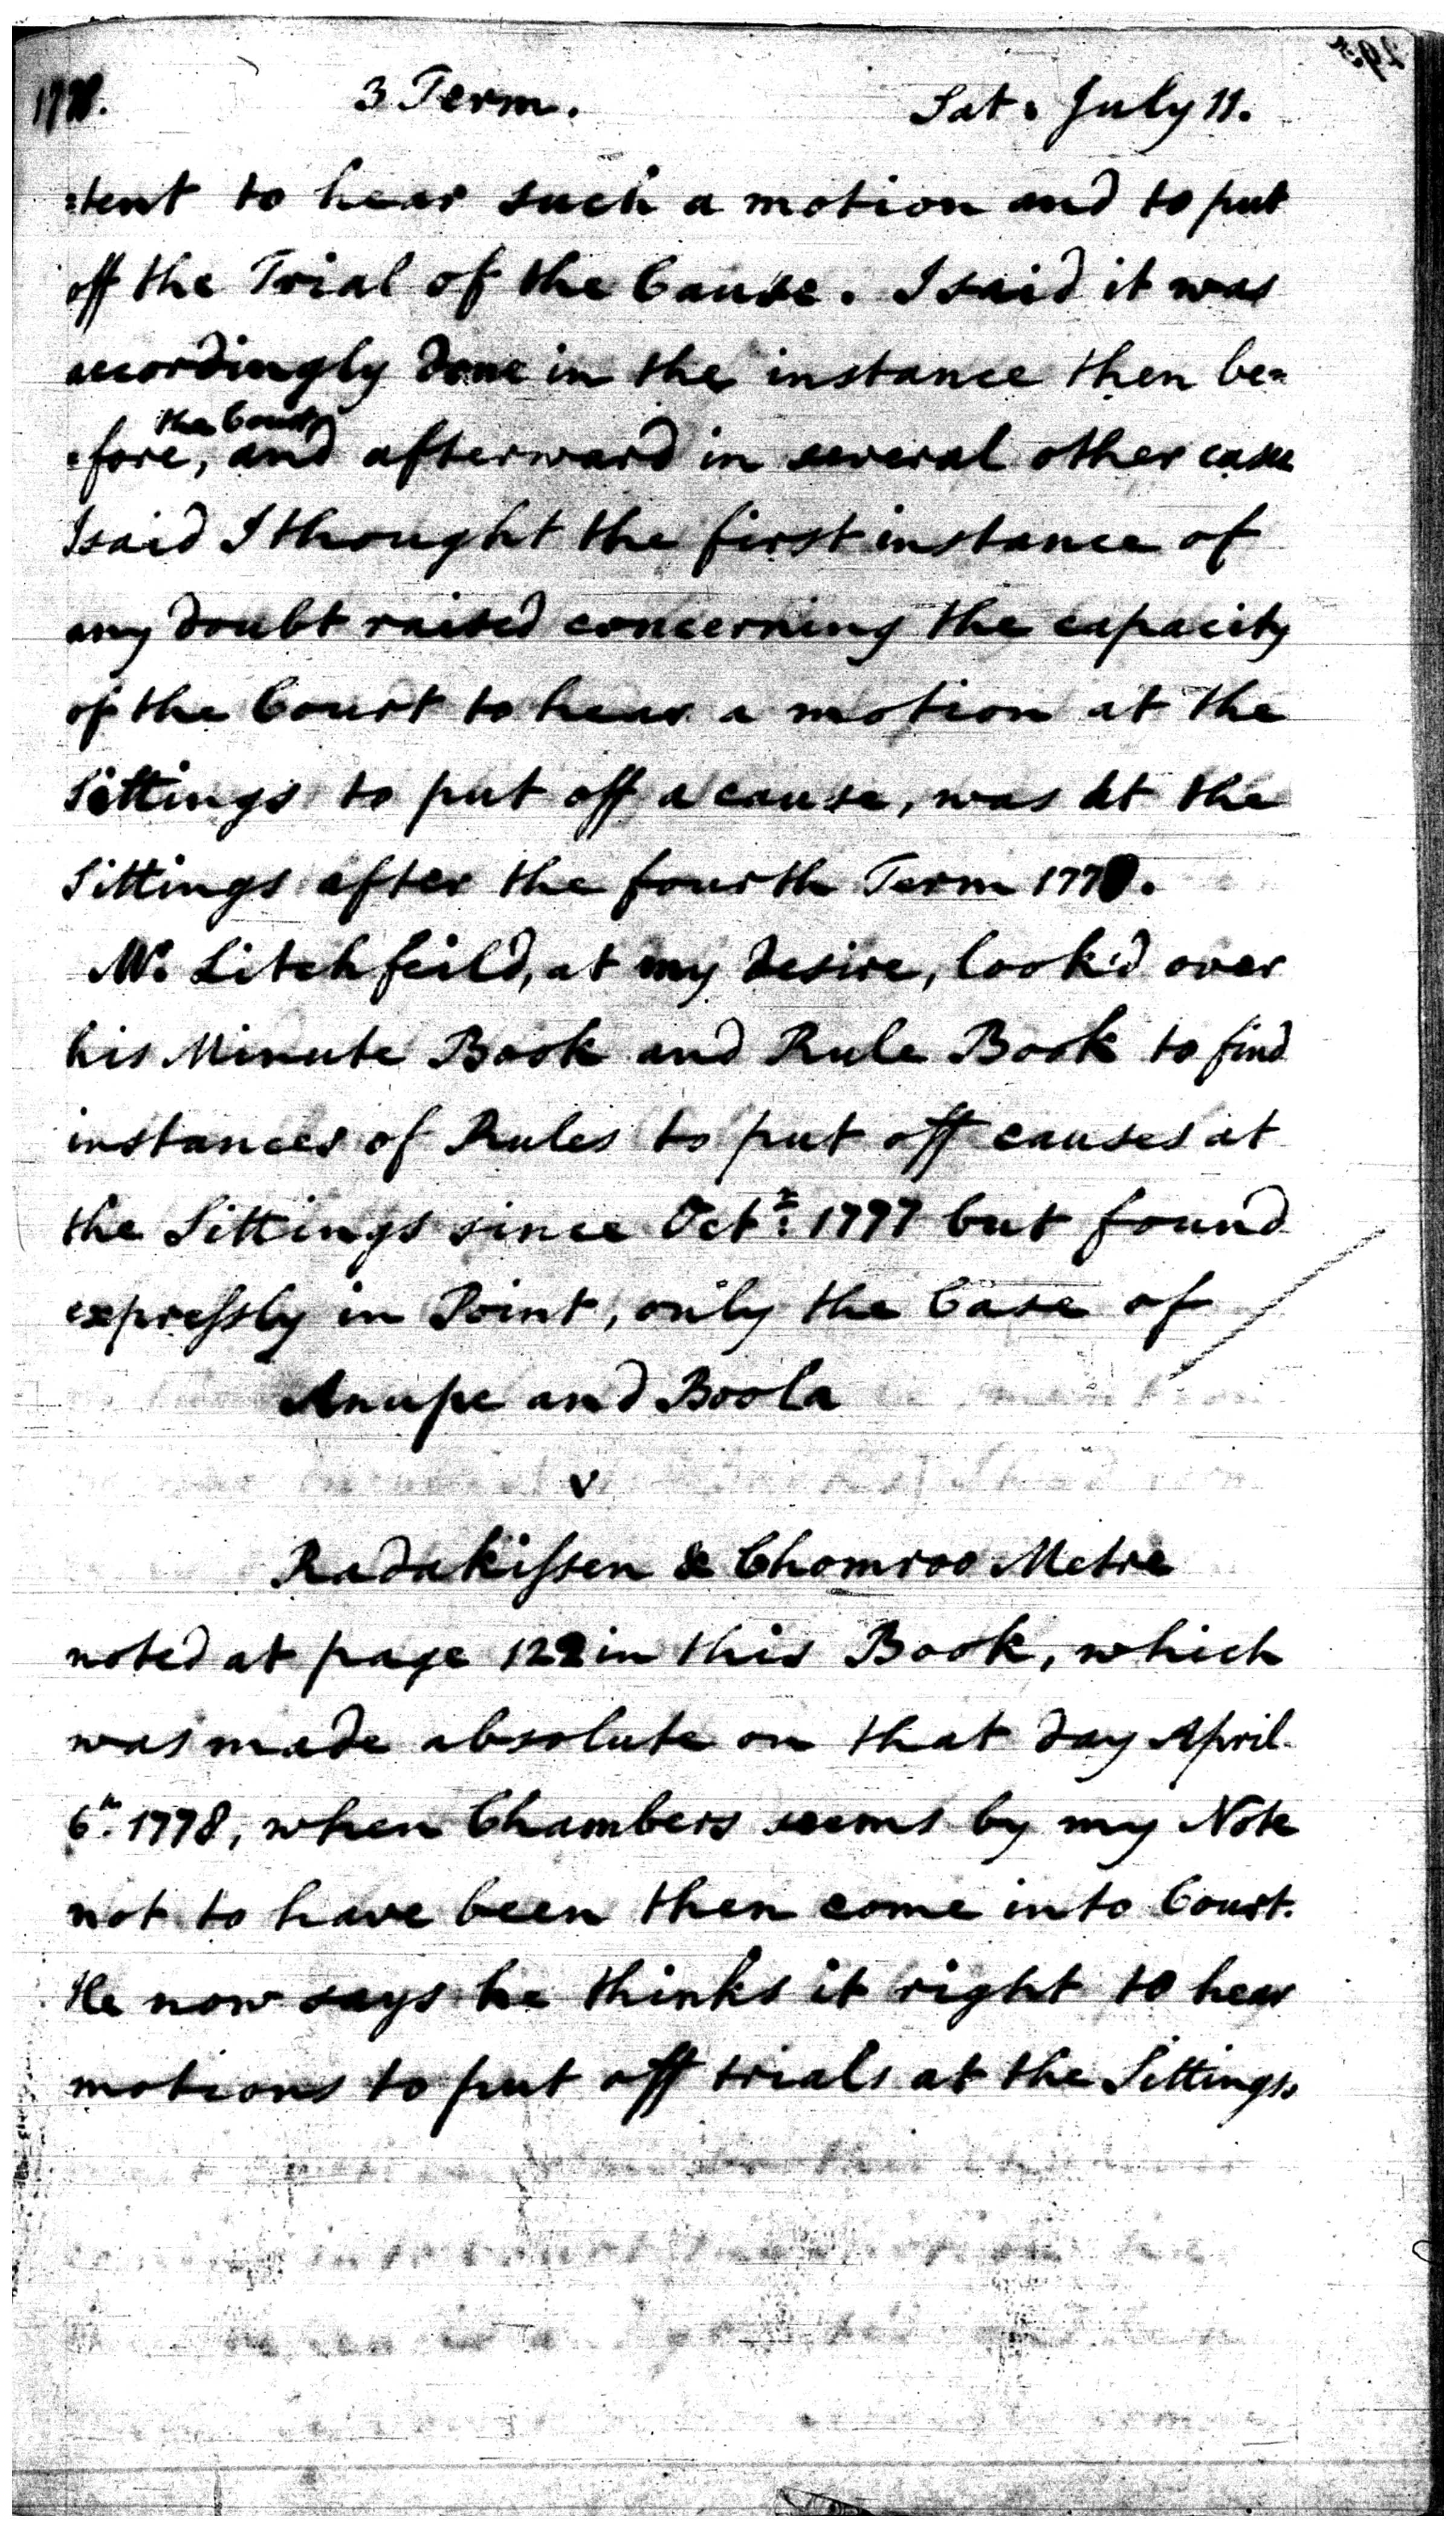 1778. 3 Term. Sat. July 11.
=tent to hear such a motion and to put
off the Trial of the Cause. I said it was
accordingly done in the instance then be=
=fore, the Court and afterward in several other cases
I said I thought the first instance of
any doubt raised concerning the capacity
of the Court to hear a motion at the
Sittings to put off a cause, was at the
Sittings after the fourth Term 177
Mr. Litchfeild, at my desire, look'd over
his Minute Book and Rule Book to find
instances of Rules to put off causes at
the Sittings since Octr. 1777 but found
expressly in Point, only the Case of
Anupe and Boola
v
Radakissen & Chomroo Metre
noted at page 122 in this Book, which
was made absolute on that day April
6th. 1778, when Chambers seems by my Note
not to have been then come into Court.
He now says he thinks it right to hear
motions to put off trials at the Sittings.